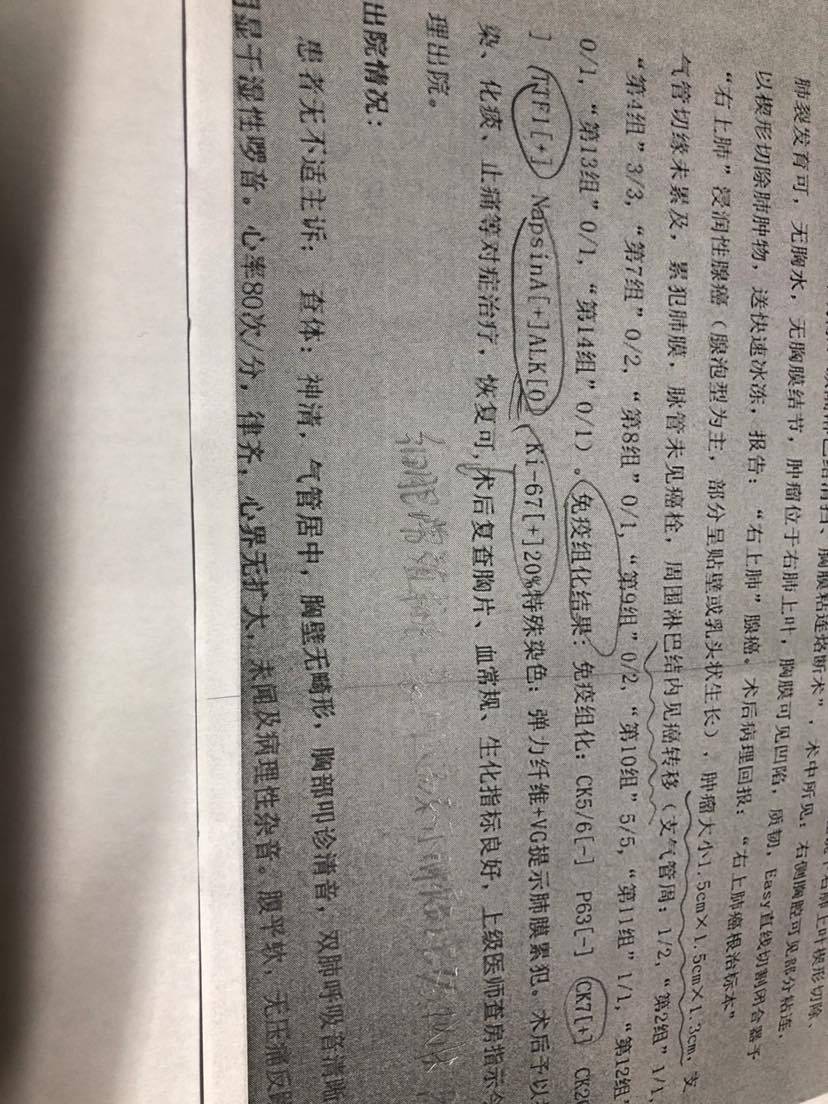 肺裂发育可，无胸水，无胸膜结节，肿瘤位于右肺上叶，胸膜可见凹陷，质韧，Easy直线切割闭合器予
以楔形切除肺肿物，送快速冰冻，报告：“右上肺”腺癌。术后病理回报：“右上肺癌根治标本”
“右上肺”浸润性腺癌（腺泡型为主，部分呈贴壁或乳头状生长），肿瘤大小1.5cm×1.5cm×1.3cm，支
气管切缘未累及，累犯肺膜，脉管未见癌栓，周围淋巴结内见癌转移（支气管周：1/2，“第2组”1/1，
“第4组”3/3，“第7组”0/2，“第8组”0/1，“第9组”0/2，“第10组”5/5，“第11组”1/1，“第12组”
0/1，“第13组”0/1，“第14组”0/1）。免疫组化结果：免疫组化：CK5/6[-] P63[-] CK7[+]
] TTF1[+] NapsinA[+]ALK[0] Ki-67[+]20%特殊染色：弹力纤维+VG提示肺膜累犯。术后予以
染、化痰、止痛等对症治疗，恢复可，术后复查胸片、血常规、生化指标良好，上级医师查房指示
理出院。
出院情况：
患者无不适主诉； 查体：神清，气管居中，胸壁无畸形，胸部叩诊清音，双肺呼吸音清晰
显干湿性啰音。心率80次/分，律齐，心界无扩大，未闻及病理性杂音。腹平软，无压痛反